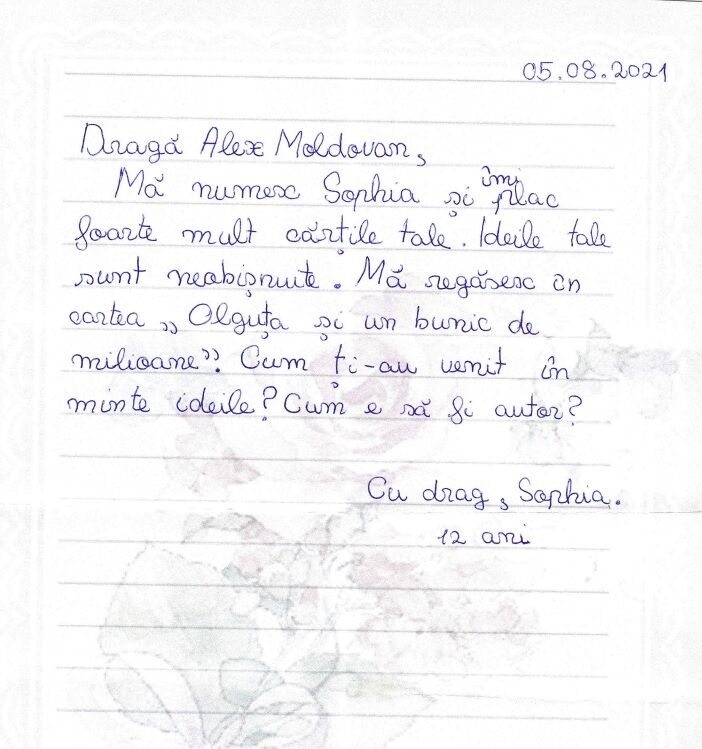 05.08.2021
Dragă Alex Moldovan,
Mă numesc Sophia și îmi plac
foarte mult cărțile tale. Ideile tale
sunt neobișnuite. Mă regăsesc în
cartea „Olguța și un bunic de
milioane”. Cum ți-au venit în
minte ideile? Cum e să fi autor?
Cu drag, Sophia.
12 ani